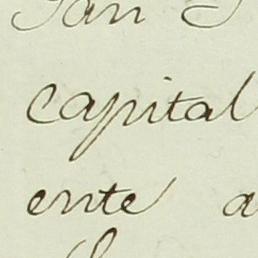 San
capital
ente a